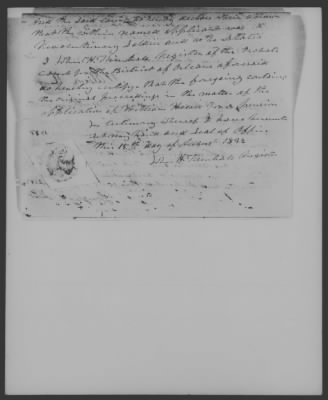 And the said Court do hereby declare their opinion
that the within named applicant was a
Revolutionary Soldier and as he States
I John H. Kimball Register of the Probate
Court for the District of Orleans aforesaid
do hereby certify that the foregoing contains
the original proceedings in the matter of the
application of William Howe for a Pension
In testimony whereof I have hereunto
set my hand and Seal of Office
this 15th day of August 1832
John H. Kimball Register